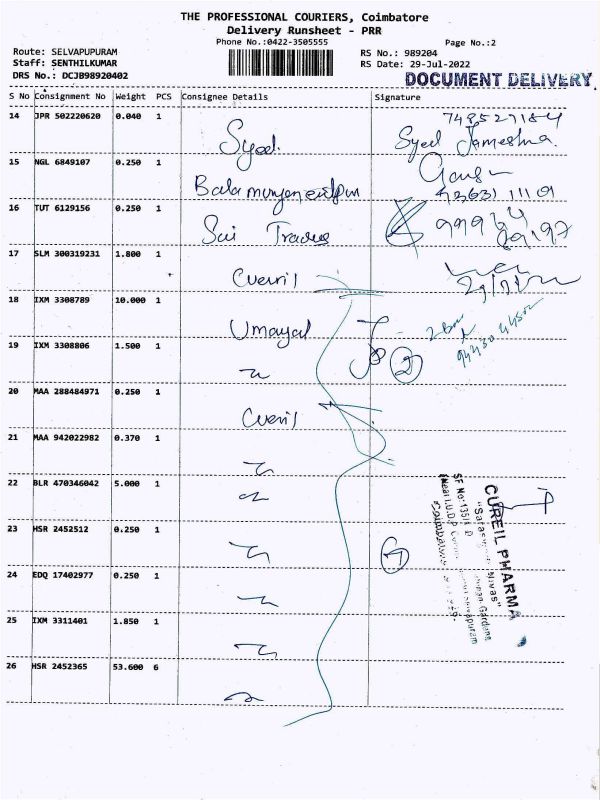 THE PROFESSIONAL COURIERS, Coimbatore
Delivery Runsheet - PRR
Phone No.:0422-3505555
Page No.:2
Route: SELVAPUPURAM
RS No.: 989204
Staff: SENTHILKUMAR
RS Date: 29-Jul-2022
DRS No.: DCJB98920402
DOCUMENT DELIVERY
S No Consignment No Weight PCS Consignee Details Signature
14 JPR 502220620 0.040 1 Syed. Syed
15 NGL 6849107 0.250 1
16 TUT 6129156 0.250 1 Sai Traders
17 SLM 300319231 1.800 1
18 IXM 3308789 10.000 1 Umayal
19 IXM 3308806 1.500 1 2
20 MAA 288484971 0.250 1
21 MAA 942022982 0.370 1
22 BLR 470346042 5.000 1
23 HSR 2452512 0.250 1
24 EDQ 17402977 0.250 1
25 IXM 3311401 1.850 1
26 HSR 2452365 53.600 6
CUREIL PHARMA